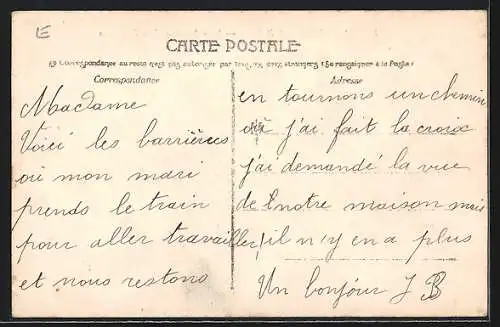 E
CARTE POSTALE
La Correspondance au recto n'est pas autorisée par tous les pays étrangers (Se renseigner à la Poste)
Correspondance
Adresse
Madame
Voici les barrières
où mon mari
prends le train
pour aller travailler,
et nous restons
en tournons un chemin
où j'ai fait la croix
j'ai demandé la vue
de notre maison mais
il n'y en a plus
Un bonjour J B